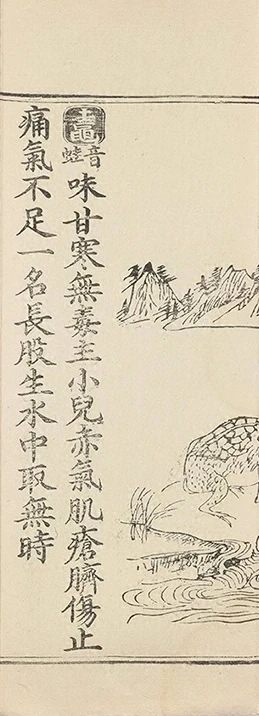 鼃音蛙味甘寒無毒主小兒赤氣肌瘡臍傷止
痛氣不足一名長股生水中取無時